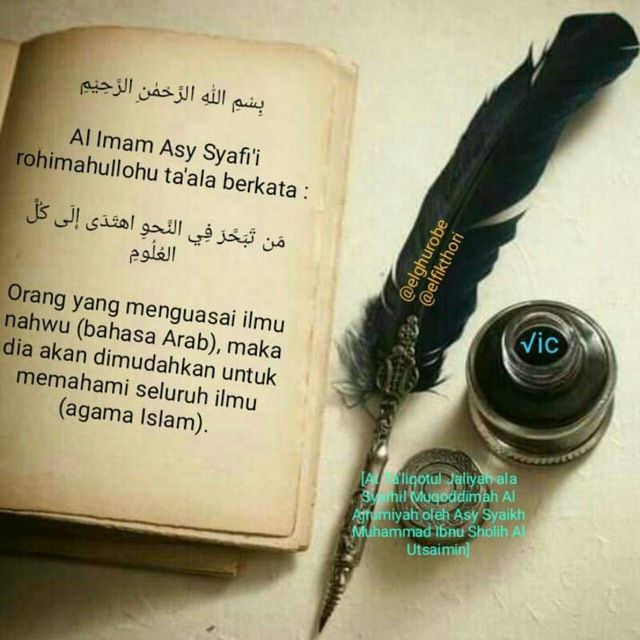 بِسْمِ اللهِ الرَّحْمٰنِ الرَّحِيْمِ
Al Imam Asy Syafi'i
rohimahullohu ta'ala berkata :
مَن تَبَحَّرَ فِي النَّحوِ اهتَدَى إلَى كُلِّ
العُلُومِ
Orang yang menguasai ilmu
nahwu (bahasa Arab), maka
dia akan dimudahkan untuk
memahami seluruh ilmu
(agama Islam).
@elghurobe
@elfikthori
√ic
[At Ta'liqotul Jaliyah ala
Syarhil Muqoddimah Al
Ajrumiyah oleh Asy Syaikh
Muhammad Ibnu Sholih Al
Utsaimin]